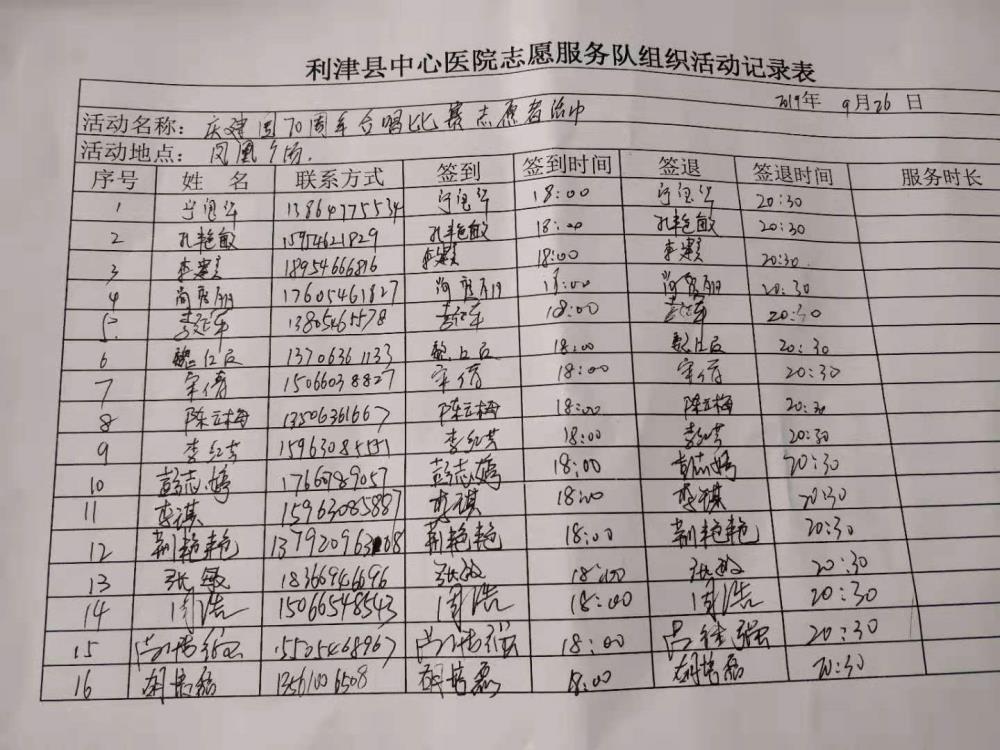 利津县中心医院志愿服务队组织活动记录表
2019年 9月26日
活动名称：庆建国70周年合唱比赛志愿者活动
活动地点：凤凰广场.
序号 姓名 联系方式 签到 签到时间 签退 签退时间 服务时长
1 13864775534 18:00 20:30
2 孔艳敏 15954621829 孔艳敏 18:00 孔艳敏 20:30
3 18954666816 18:00 20:30.
4 尚 17605461827 尚 18:00 尚 20:30
5. 李延军 13805465578 李延军 18:00 李延军 20:30
6 魏 13706361133 魏 18:00 魏 20:30
7 宋倩 15066038827 宋倩 18:00 宋倩 20:30
8 陈立梅 13506361667 陈立梅 18:00 陈立梅 20:30
9 李红芳 李红芳 18:00 李红芳 20:30
10 彭志婷 17660789057 彭志婷 18:00 彭志婷 20:30
11 李祺 15963085887 李祺 18:00 李祺 20:30
12 荆艳艳 荆艳艳 18:00 荆艳艳 20:30
13 张敏 18366946696 张敏 18:00 张敏 20:30
14 周浩 15066548543 周浩 18:00 周浩 20:30
15 15505468967 18:00 20:30
16 胡培磊 13561006508 胡培磊 18:00 胡培磊 20:30